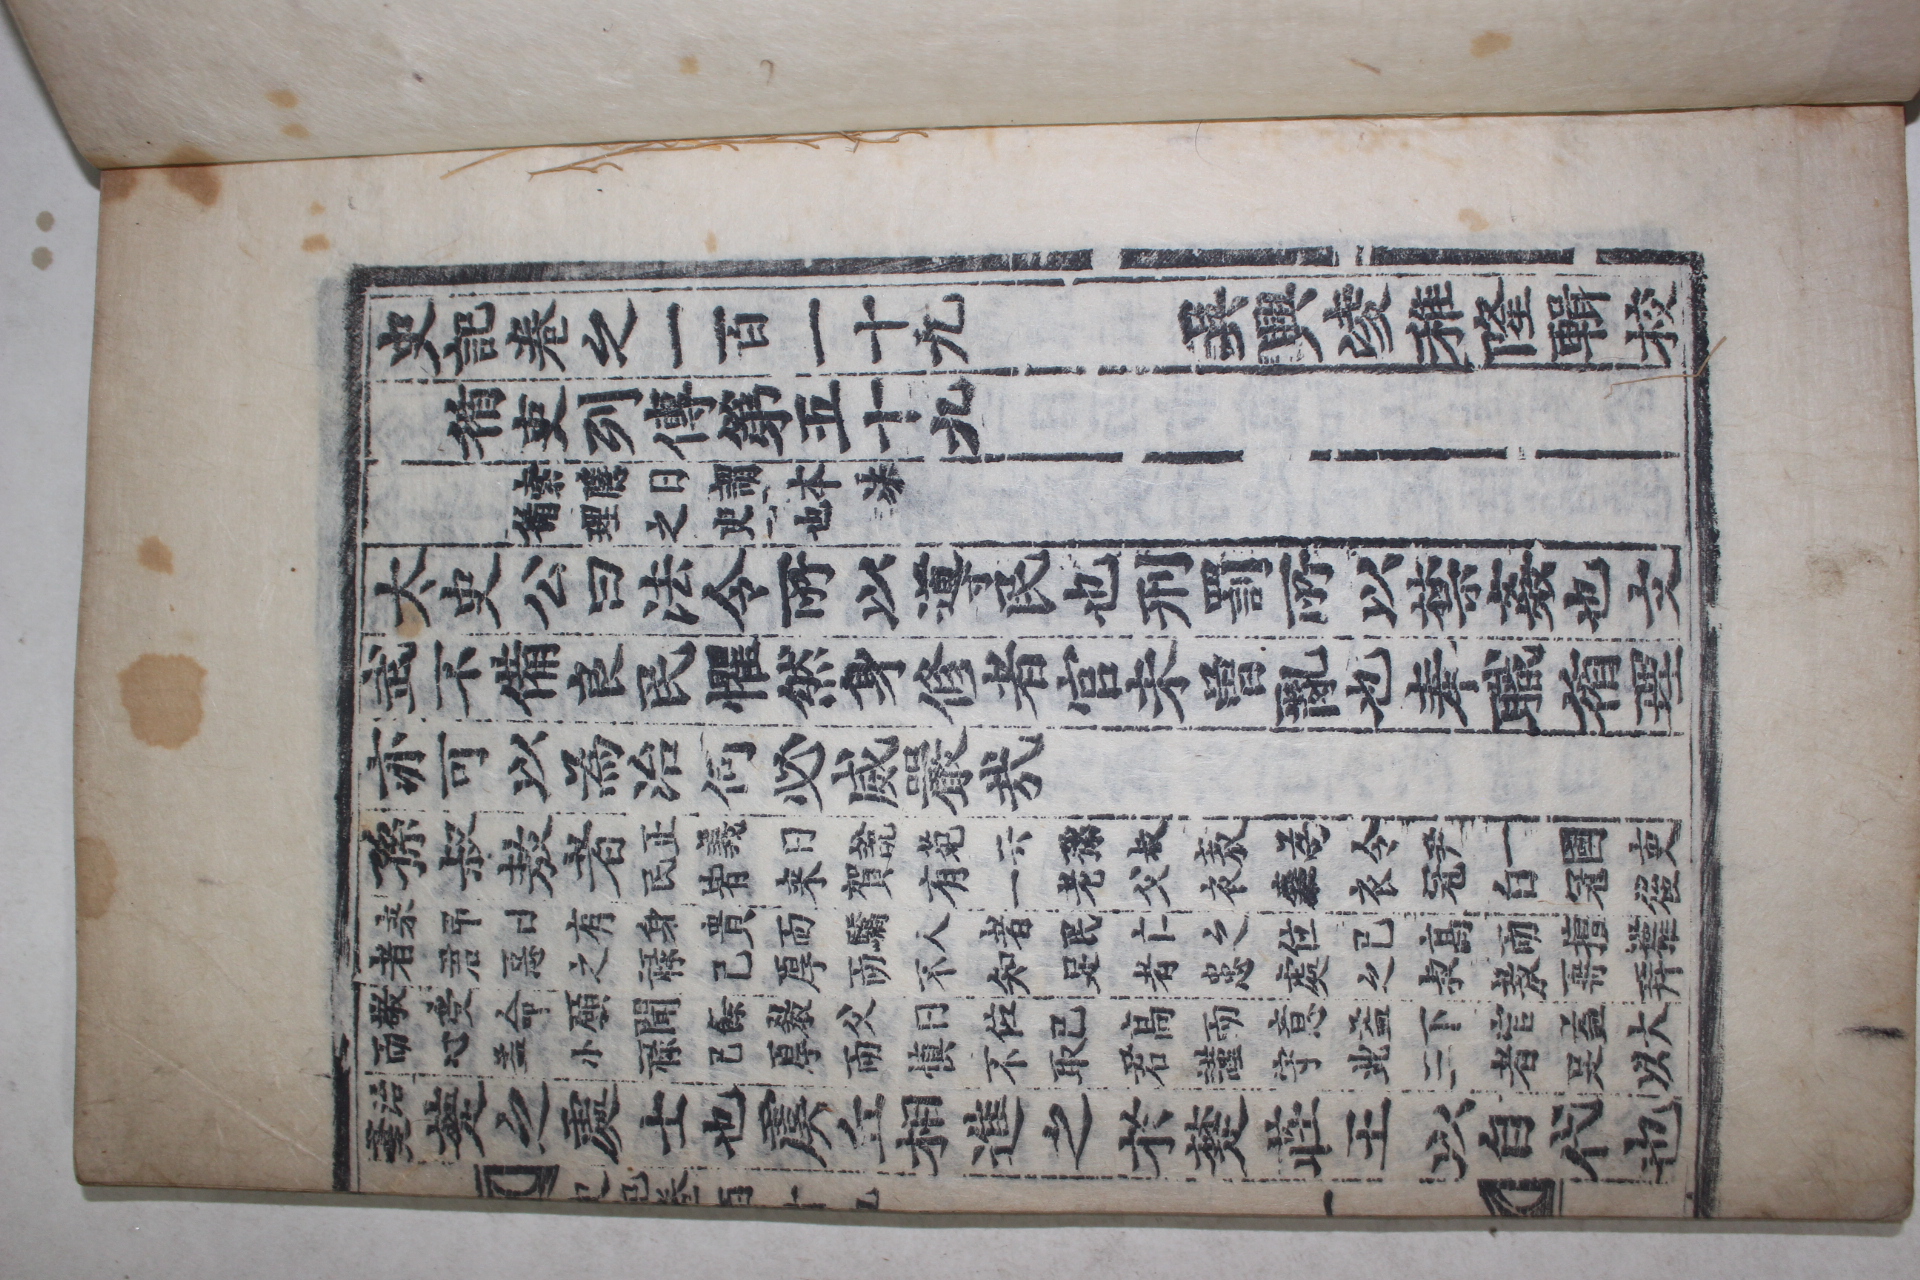 史記卷之一百一十九 吳興凌稚隆輯校
循吏列傳第五十九
索隱曰謂本法
循理之吏也
太史公曰法令所以導民也刑罰所以禁姦也文
武不備良民懼然身修者官未曾亂也奉職循理
亦可以為治何必威嚴哉
孫叔敖者
正義曰說苑云孫叔敖為令尹一國吏
民皆来賀有一老父衣麤衣冠白冠後
来弔曰有身貴而驕人者民亡之位已髙而擅權
者君惡之祿已厚而不知足者患處之叔敖再拜
敬受命願聞餘教父曰位已高而意益下官益大
而心益小祿已厚而慎不取君謹守此三者足以
治
楚之處士也虞丘相進之於楚莊王以自代也
史記卷百十九
一